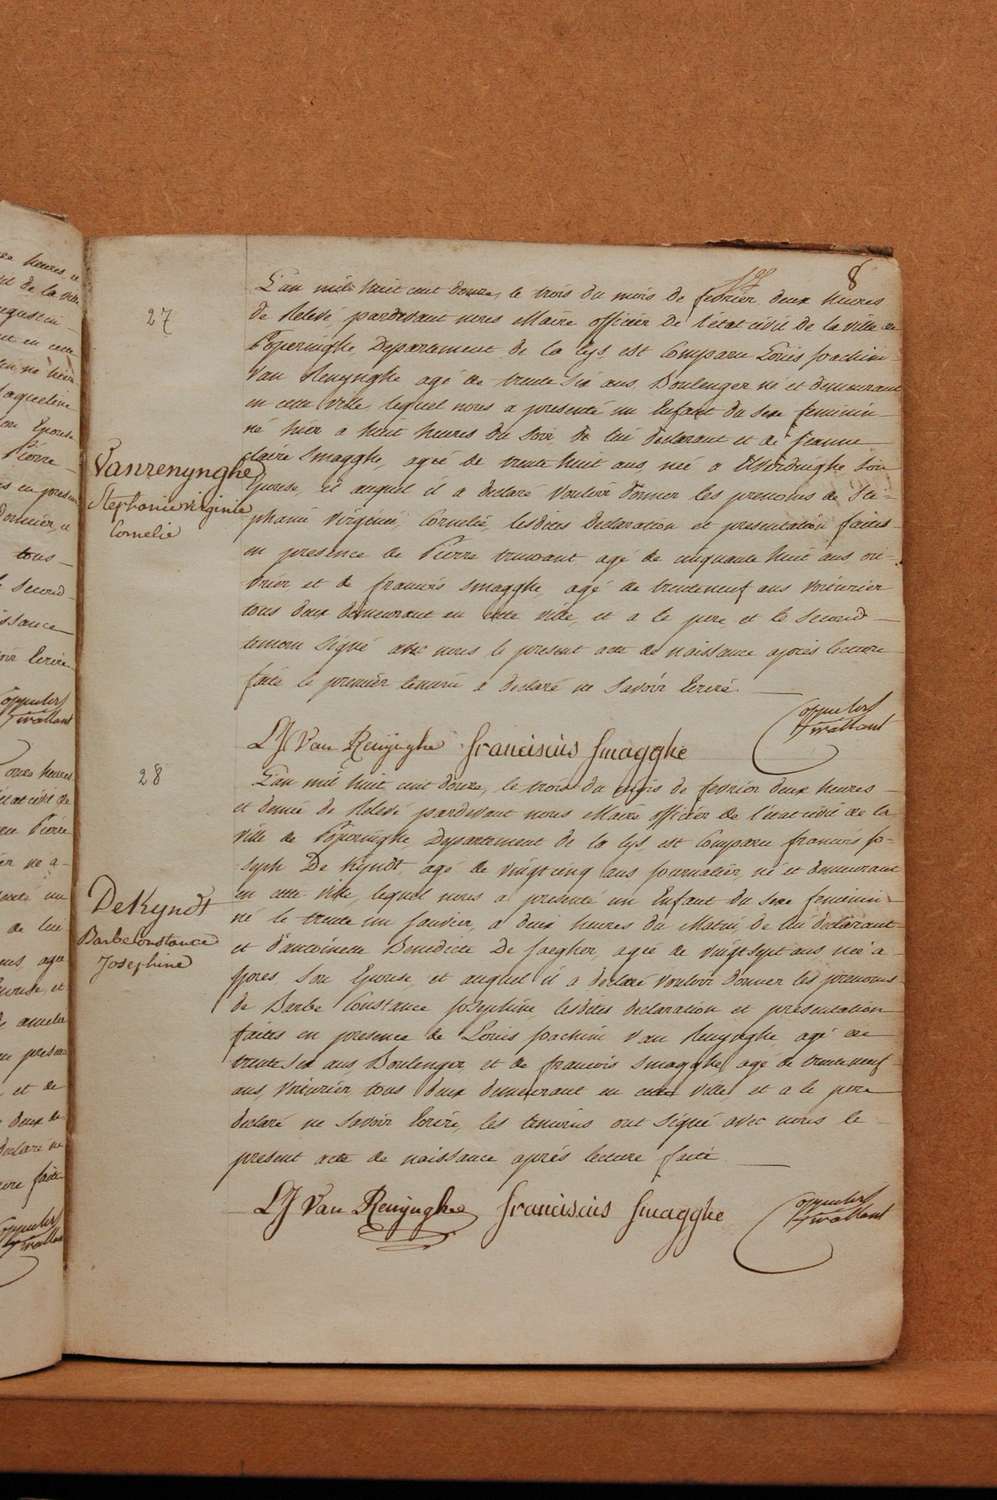 8
27
Vanrenynghe
Stephanie virginie
Cornelie
L'an mil huit cent douze, le trois du mois de fevrier deux heures
de Relevé, pardevant nous Maire officier de l'état civil de la ville de
Poperinghe Departement de la lys est Comparu Louis Joachim
Van Renynghe agé de trente Six ans Boulenger né et demeurant
en cette ville, lequel nous a presenté un Enfant du sexe feminin
né hier a huit heures du soir de lui declarant et de jeanne
claire Smagghe, agée de trente huit ans née a Elverdinghe Son
Epouse, et auquel il a declaré Vouloir donner les prenoms de Ste-
phanie Virginie Cornelie, lesdites declaration et presentation faites
en presence de Pierre agé de cinquante huit ans ou-
vrier et de francois Smagghe, agé de trenteneuf ans Voiturier
tous deux demeurant en cette ville, et a le pere et le second
temoin Signé avec nous le present acte de naissance après lecture
faite le premier temoin a declaré ne Savoir Ecrire.
LJ Van Renynghe franciscus Smagghe
28
DeKyndt
Barbe Constance
Josephine
L'an mil huit cent douze, le trois du mois de fevrier deux heures
et demie de Relevé pardevant nous Maire officier de l'état civil de la
ville de Poperinghe Departement de la lys est Comparu francois jo-
seph De Kyndt agé de vingtcinq ans journalier né et demeurant
en cette ville, lequel nous a presenté un Enfant du sexe feminin
né le trente un Janvier, a deux heures du Matin, de lui declarant
et d'antoinette Benedicte De Jaegher, agée de vingtsept ans née a
Ypres Son Epouse, et auquel il a declaré vouloir donner les prenoms
de Barbe Constance josephine lesdites declaration et présentation
faites en presence de Louis Joachim Van Renynghe agé de
trente Six ans Boulenger et de francois Smagghe agé de trenteneuf
ans, Voiturier tous deux demeurant en cette ville et a le pere
declaré ne Savoir Ecrire, les temoins ont signé avec nous le
present acte de naissance après lecture faite
LJ Van Renynghe franciscus Smagghe